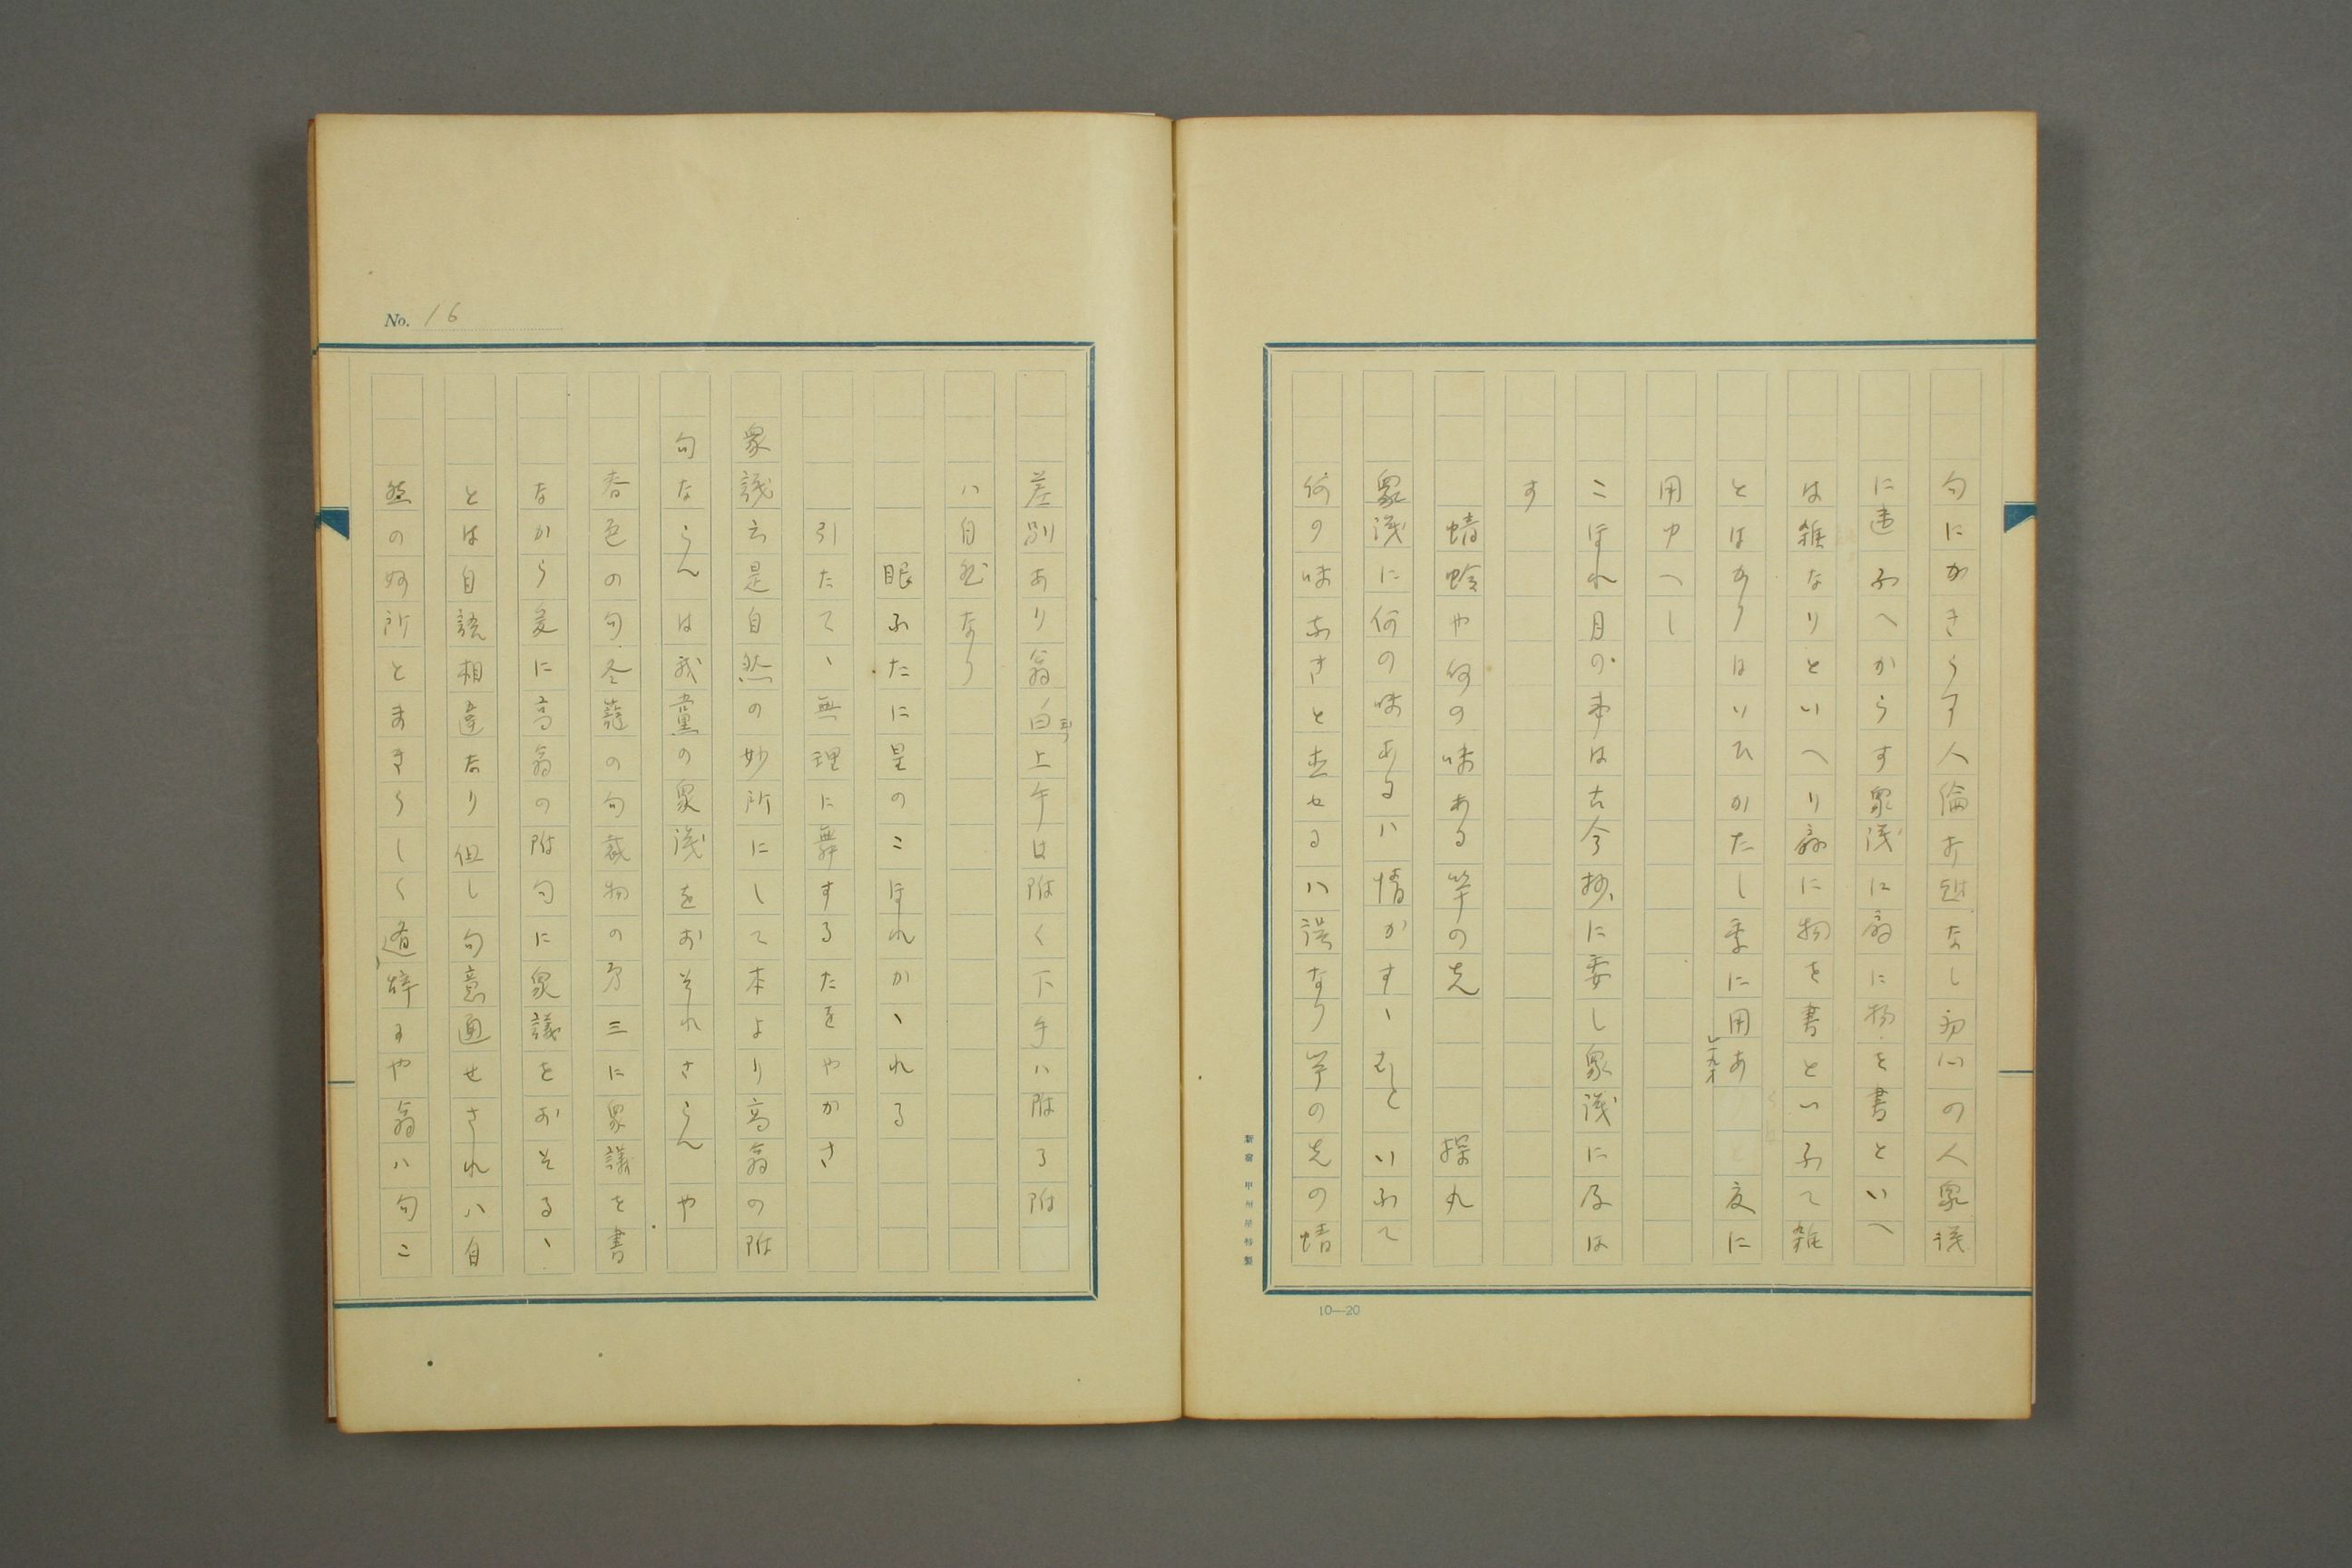 句にかきらす人倫お越なし初心の人衆議
に迷ふへからす衆議に扇に物を書といへ
は雑なりといへり扇に物を書といふて雑
とはかりはいひかたし季に用あ 夏に
用ゆへし
こほれ月の事は古今抄に委し衆議に及は
す
蜻蛉や何の味ある竿の先 探丸
衆議に何の味あるハ情かすゝむといふて
何の味なきと並せるハ誤なり竿の先の蜻
新宿 甲州屋特製
10—20
No. 16
差別あり翁白上手は附く下手ハ附る附
ハ自然なり
眼ふたに星のこほれかゝれる
引たてゝ無理に舞するたをやかさ
衆議云是自然の妙所にして本より高翁の附
句ならんは我党の衆議をおそれさらんや
春色の句冬籠の句裁物の方三に衆議を書
なから爰に高翁の附句に衆議をおそるゝ
とは自語相違なり但し句意通せされハ自
然の好所とまきらしく遁辞すや翁ハ句こ